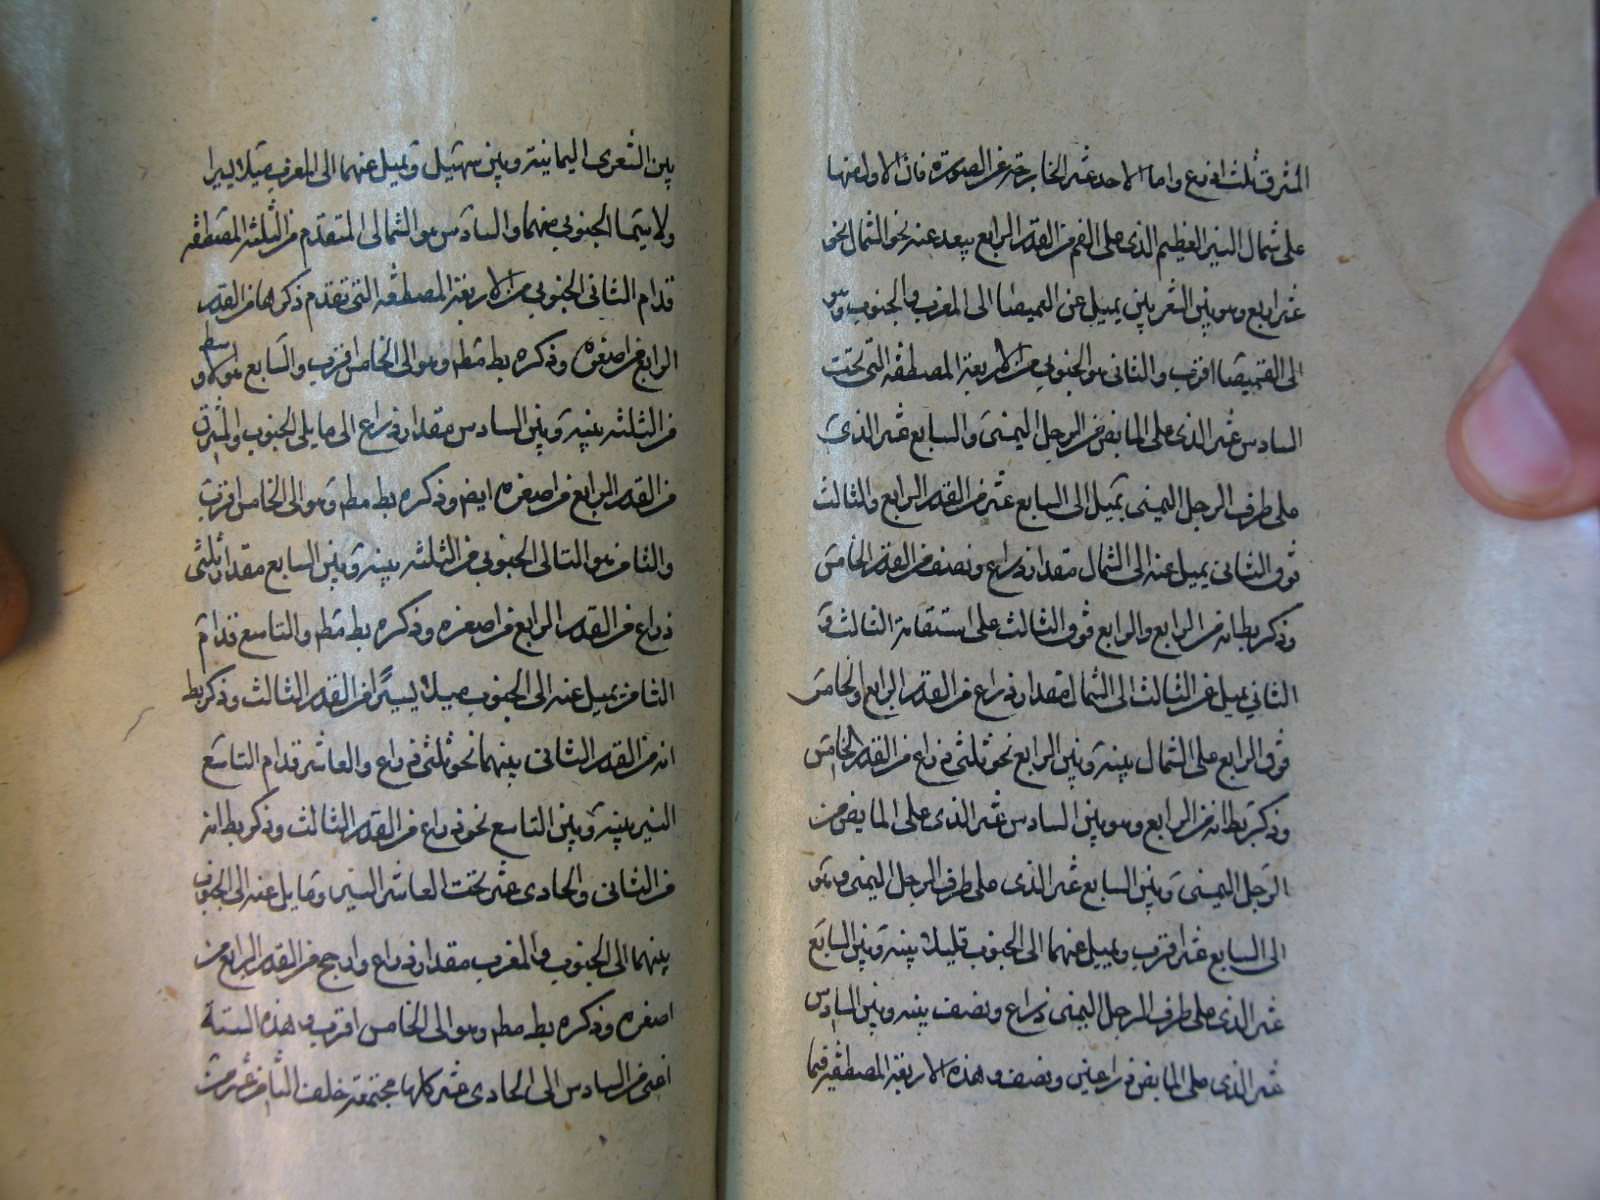 المشرق ثلث ذراع واما الاحد عشر الخارجة عن الصورة فان الاول منها
على شمال النير العظيم الذى على الفم من القدر الرابع يبعد عنه نحو الشمال نحو
عشر اذرع وهو بين الشعريين يميل عن الغميصا الى المغرب والجنوب وهو
الى الغميصا اقرب والثانى هو الجنوبي من الاربعة المصطفة التى تحت
السادس عشر الذى على المابض من الرجل اليمنى والسابع عشر الذى
على طرف الرجل اليمنى يميل الى السابع عشر من القدر الرابع والثالث
فوق الثانى يميل عنه الى الشمال مقدار ذراع ونصف من القدر الخامس
وذكر بط انه من الرابع والرابع فوق الثالث على استقامة الثالث و
الثاني يميل عن الثالث الى الشمال مقدار ذراع من القدر الرابع والخامس
فوق الرابع على الشمال بينه وبين الرابع نحو ثلثى ذراع من القدر الخامس
وذكر بط انه من الرابع وهو بين السادس عشر الذى على المابض من
الرجل اليمنى وبين السابع عشر الذى على طرف الرجل اليمنى وهو
الى السابع عشر اقرب ويميل عنهما الى الجنوب قليلا بينه وبين السابع
عشر الذى على طرف الرجل اليمنى ذراع ونصف بينه وبين السادس
عشر الذى على المابض ذراعين ونصف وهذه الاربعة المصطفة فيما
بين الشعرى اليمانية وبين سهيل وتميل عنهما الى المغرب ميلا يسيرا
ولا سيما الجنوبي منهما والسادس هو الشمالى المتقدم من الثلثة المصطفة
قدام الثانى الجنوبي من الاربعة المصطفة التى تقدم ذكرها من القدر
الرابع من اصغره وذكره بط مطه وهو الى الخامس اقرب والسابع هو الاوسط
من الثلثة بينه وبين السادس مقدار ذراع الى ما يلى الجنوب والمشرق
من القدر الرابع من اصغره ايضا وذكره بط مطه وهو الى الخامس اقرب
والثامن هو التالى الجنوبي من الثلثة بينه وبين السابع مقدار ثلثى
ذراع من القدر الرابع من اصغره وذكره بط مطه والتاسع قدام
الثامن يميل عنه الى الجنوب ميلا يسيرا من القدر الثالث وذكر بط
انه من القدر الثانى بينهما نحو ثلثى ذراع والعاشر قدام التاسع
النير بينه وبين التاسع نحو ذراع من القدر الثالث وذكر بط انه
من الثانى والحادى عشر تحت العاشر النير وتمايل عنه الى الجنوب
بينهما الى الجنوب والمغرب مقدار ذراع وارجح من القدر الرابع من
اصغره وذكره بط مطه وهو الى الخامس اقرب وهذه الستة
اعنى من السادس الى الحادى عشر كلها مجتمعة خلف الثامن عشر من